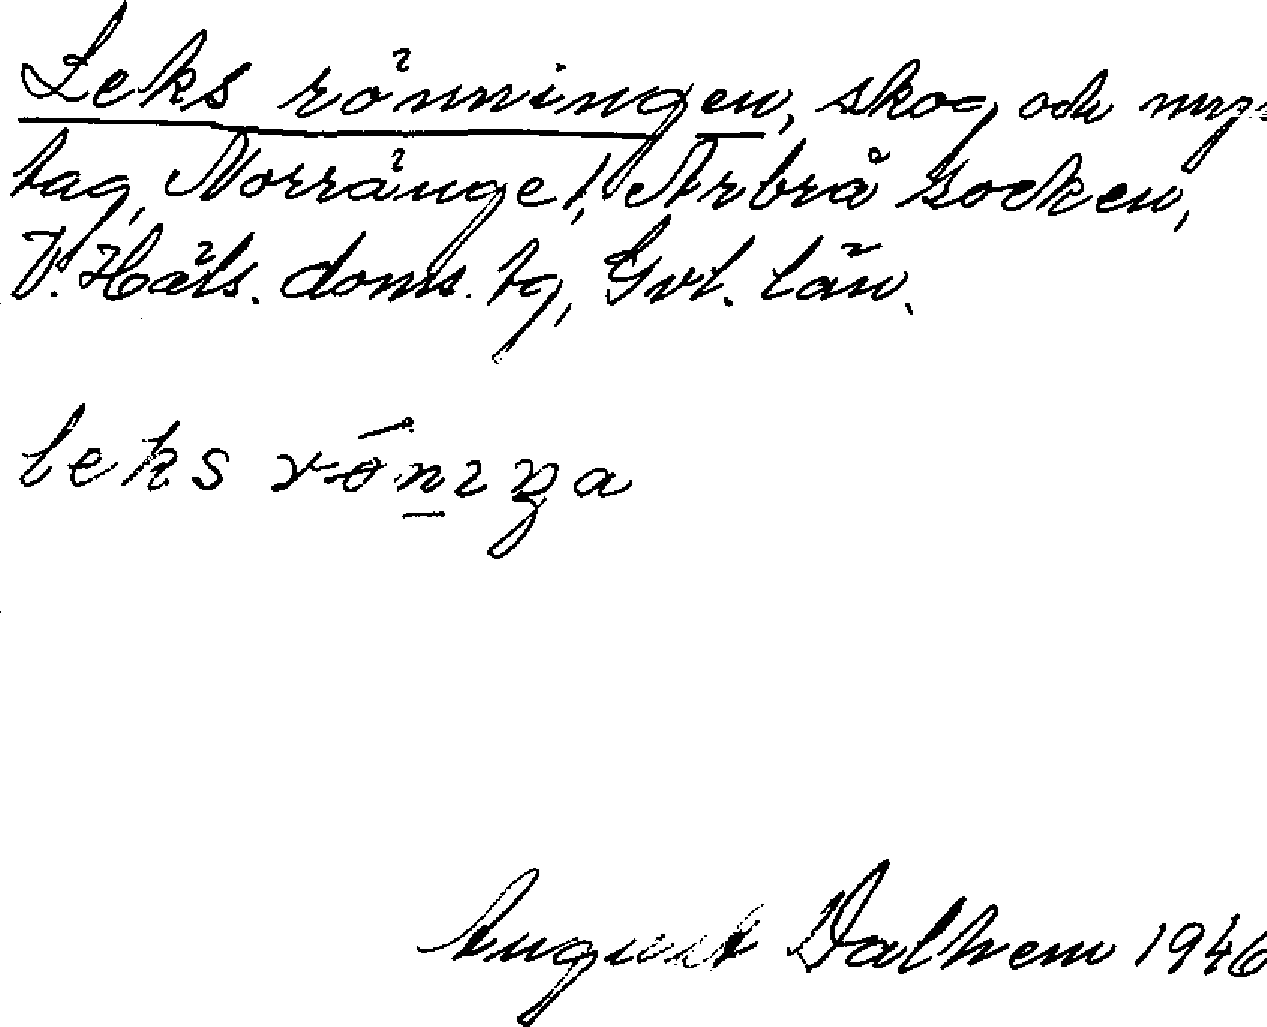 Leks rönningen, skog och myr-
tag, Norränge!, Arbrå socken,
V. Häls. doms. tg, Gvl. län.
leks rǿnıŋa
August Dalhem 1946